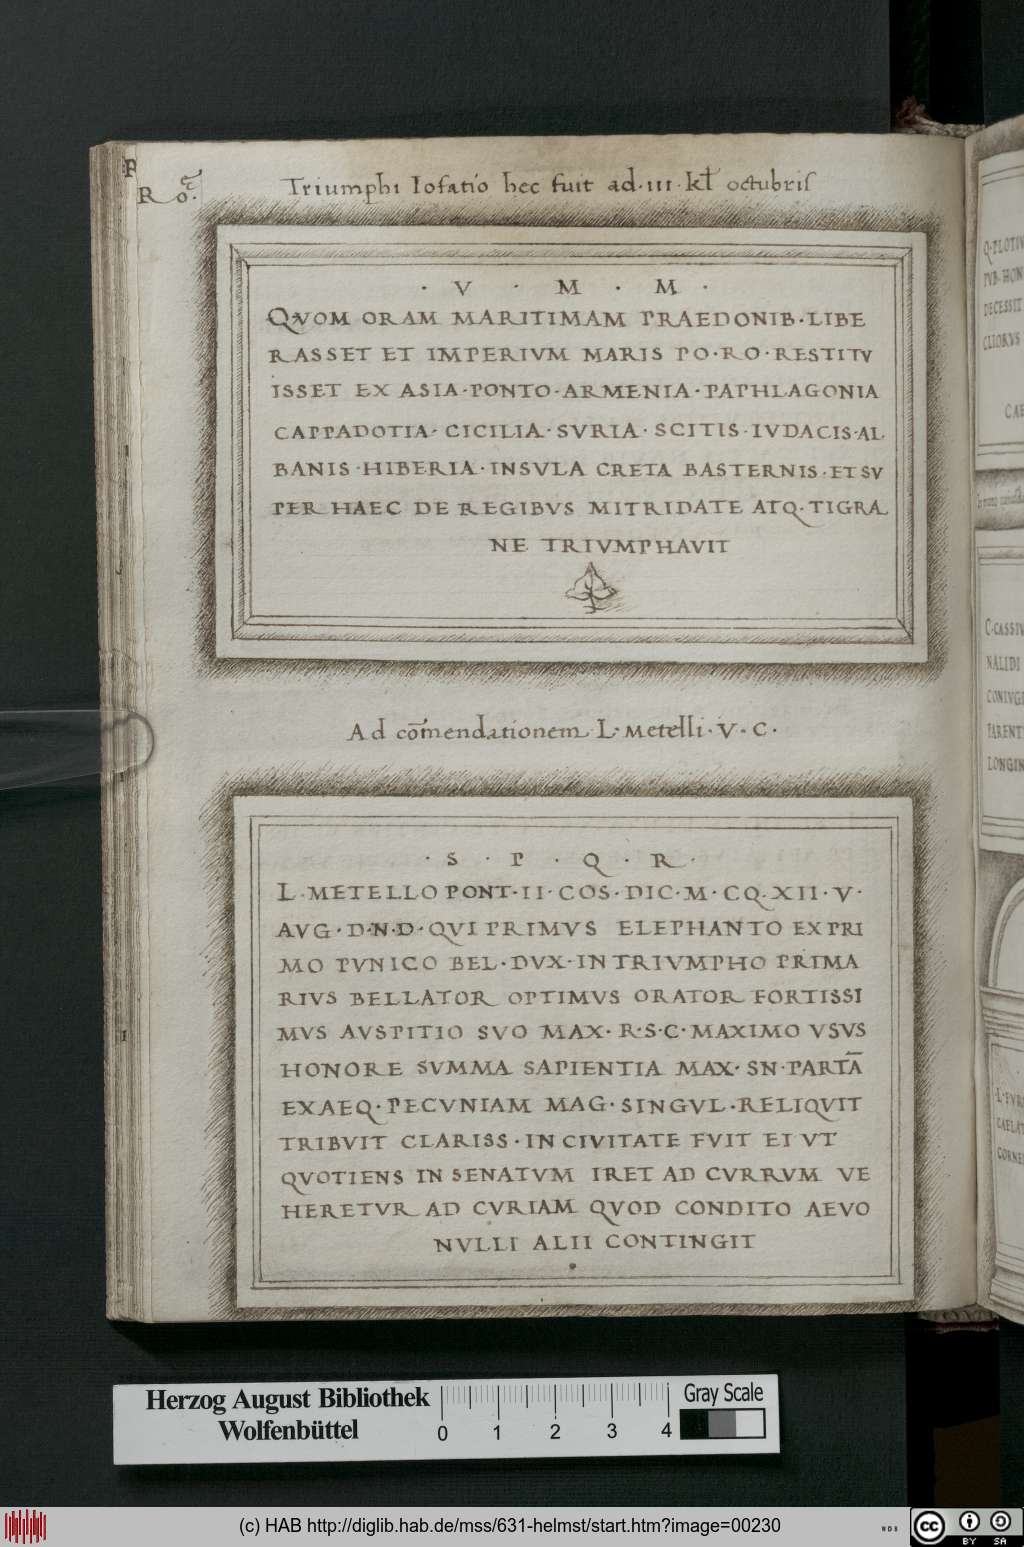 Ro.
Triumphi Iofatio hec fuit ad·III·kł octubris
· V · M · M ·
QVOM ORAM MARITIMAM PRAEDONIB·LIBE
RASSET ET IMPERIVM MARIS PO·RO·RESTITV
ISSET EX ASIA·PONTO·ARMENIA·PAPHLAGONIA
CAPPADOTIA·CICILIA·SVRIA·SCITIS·IVDACIS·AL
BANIS·HIBERIA·INSVLA CRETA BASTERNIS·ET SV
PER HAEC DE REGIBVS MITRIDATE ATQ·TIGRA
NE TRIVMPHAVIT
Ad cōmendationem L·Metelli·V·C·
· S · P · Q · R ·
L·METELLO PONT·II·COS·DIC·M·CQ·XII·V·
AVG·D·N·D·QVI PRIMVS ELEPHANTO EX PRI
MO PVNICO BEL·DVX·IN TRIVMPHO PRIMA
RIVS BELLATOR OPTIMVS ORATOR FORTISSI
MVS AVSPITIO SVO MAX·R·S·C·MAXIMO VSVS
HONORE SVMMA SAPIENTIA MAX·SN·PARTĀ
EXAEQ·PECVNIAM MAG·SINGVL·RELIQVIT
TRIBVIT CLARISS·IN CIVITATE FVIT EI VT
QVOTIENS IN SENATVM IRET AD CVRRVM VE
HERETVR AD CVRIAM QVOD CONDITO AEVO
NVLLI ALII CONTINGIT
Q·PLOTIV
DECESSIT
C·CASSIV
NALIDI
CONIVGI
PARENT
LONGIN
L·FVR
CAELAT
CORNE
Herzog August Bibliothek
Wolfenbüttel
0 1 2 3 4
Gray Scale
(c) HAB http://diglib.hab.de/mss/631-helmst/start.htm?image=00230
WDB
cc BY SA